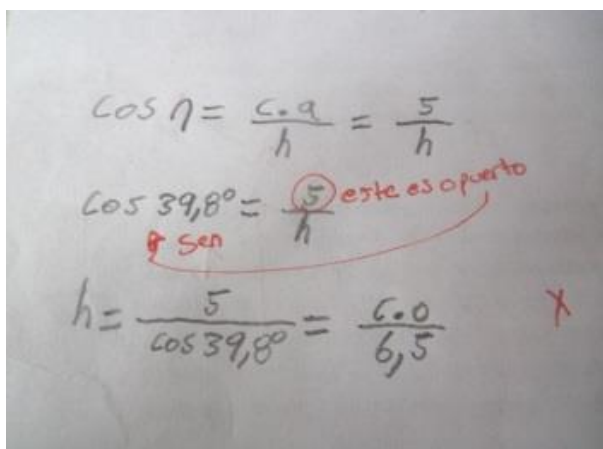 cos η = c.a / h = 5 / h
cos 39,8° = 5 / h este es opuerto
sen
h = 5 / cos 39,8° = c.o / 6,5 X